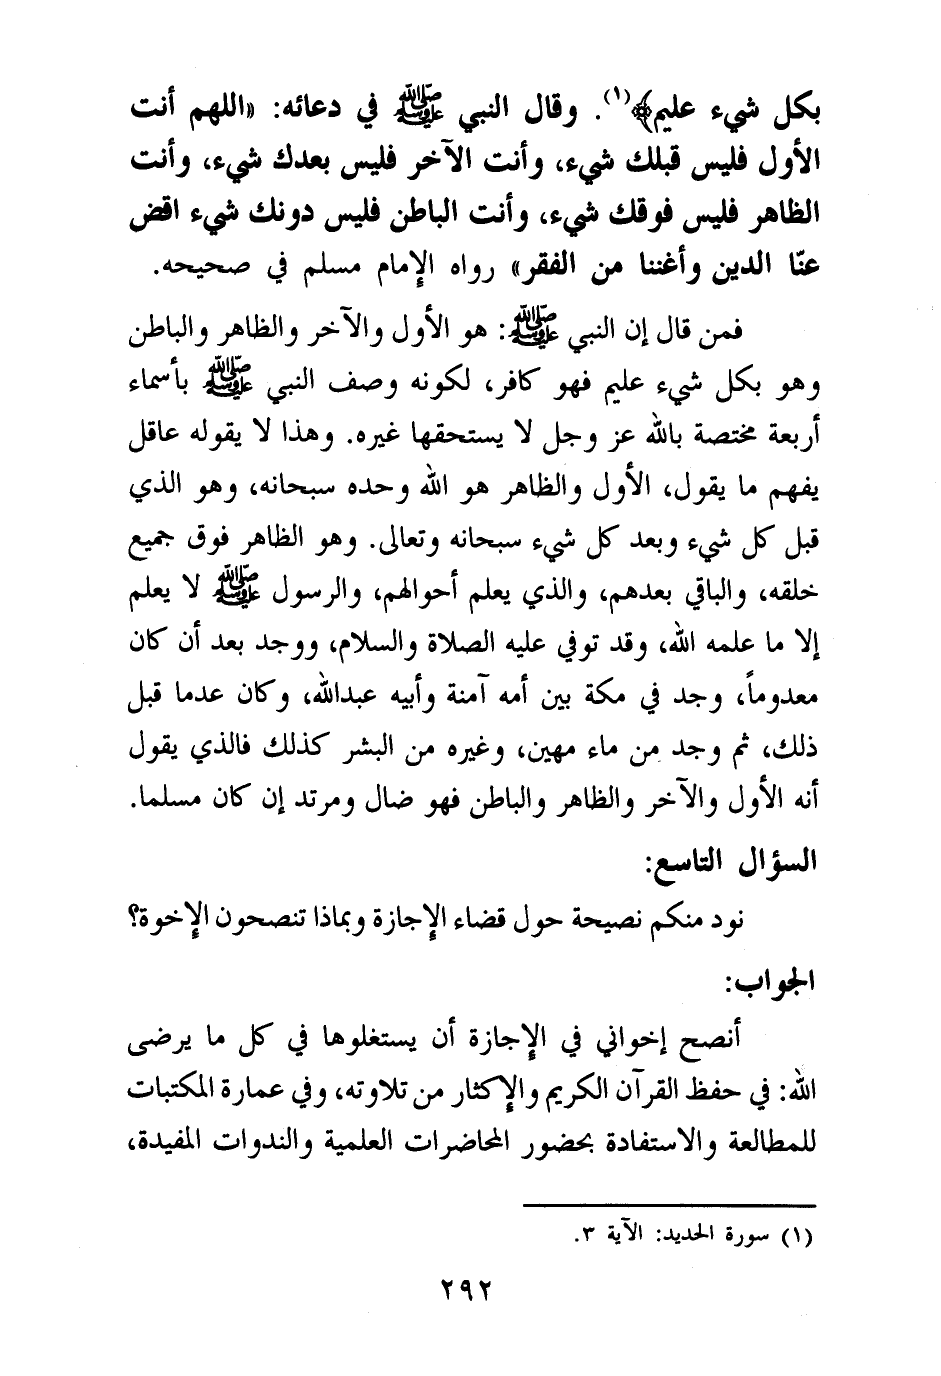 بكل شيء عليم﴾(١). وقال النبي ﷺ في دعائه: «اللهم أنت
الأول فليس قبلك شيء، وأنت الآخر فليس بعدك شيء، وأنت
الظاهر فليس فوقك شيء، وأنت الباطن فليس دونك شيء اقض
عنّا الدين وأغننا من الفقر» رواه الإمام مسلم في صحيحه.
فمن قال إن النبي ﷺ: هو الأول والآخر والظاهر والباطن
وهو بكل شيء عليم فهو كافر، لكونه وصف النبي ﷺ بأسماء
أربعة مختصة بالله عز وجل لا يستحقها غيره. وهذا لا يقوله عاقل
يفهم ما يقول، الأول والظاهر هو الله وحده سبحانه، وهو الذي
قبل كل شيء وبعد كل شيء سبحانه وتعالى. وهو الظاهر فوق جميع
خلقه، والباقي بعدهم، والذي يعلم أحوالهم، والرسول ﷺ لا يعلم
إلا ما علمه الله، وقد توفي عليه الصلاة والسلام، ووجد بعد أن كان
معدوماً، وجد في مكة بين أمه آمنة وأبيه عبدالله، وكان عدما قبل
ذلك، ثم وجد من ماء مهين، وغيره من البشر كذلك فالذي يقول
أنه الأول والآخر والظاهر والباطن فهو ضال ومرتد إن كان مسلما.
السؤال التاسع:
نود منكم نصيحة حول قضاء الإجازة وبماذا تنصحون الإخوة؟
الجواب:
أنصح إخواني في الإجازة أن يستغلوها في كل ما يرضى
الله: في حفظ القرآن الكريم والإكثار من تلاوته، وفي عمارة المكتبات
للمطالعة والاستفادة بحضور المحاضرات العلمية والندوات المفيدة،
(١) سورة الحديد: الآية ٣.
٢٩٢